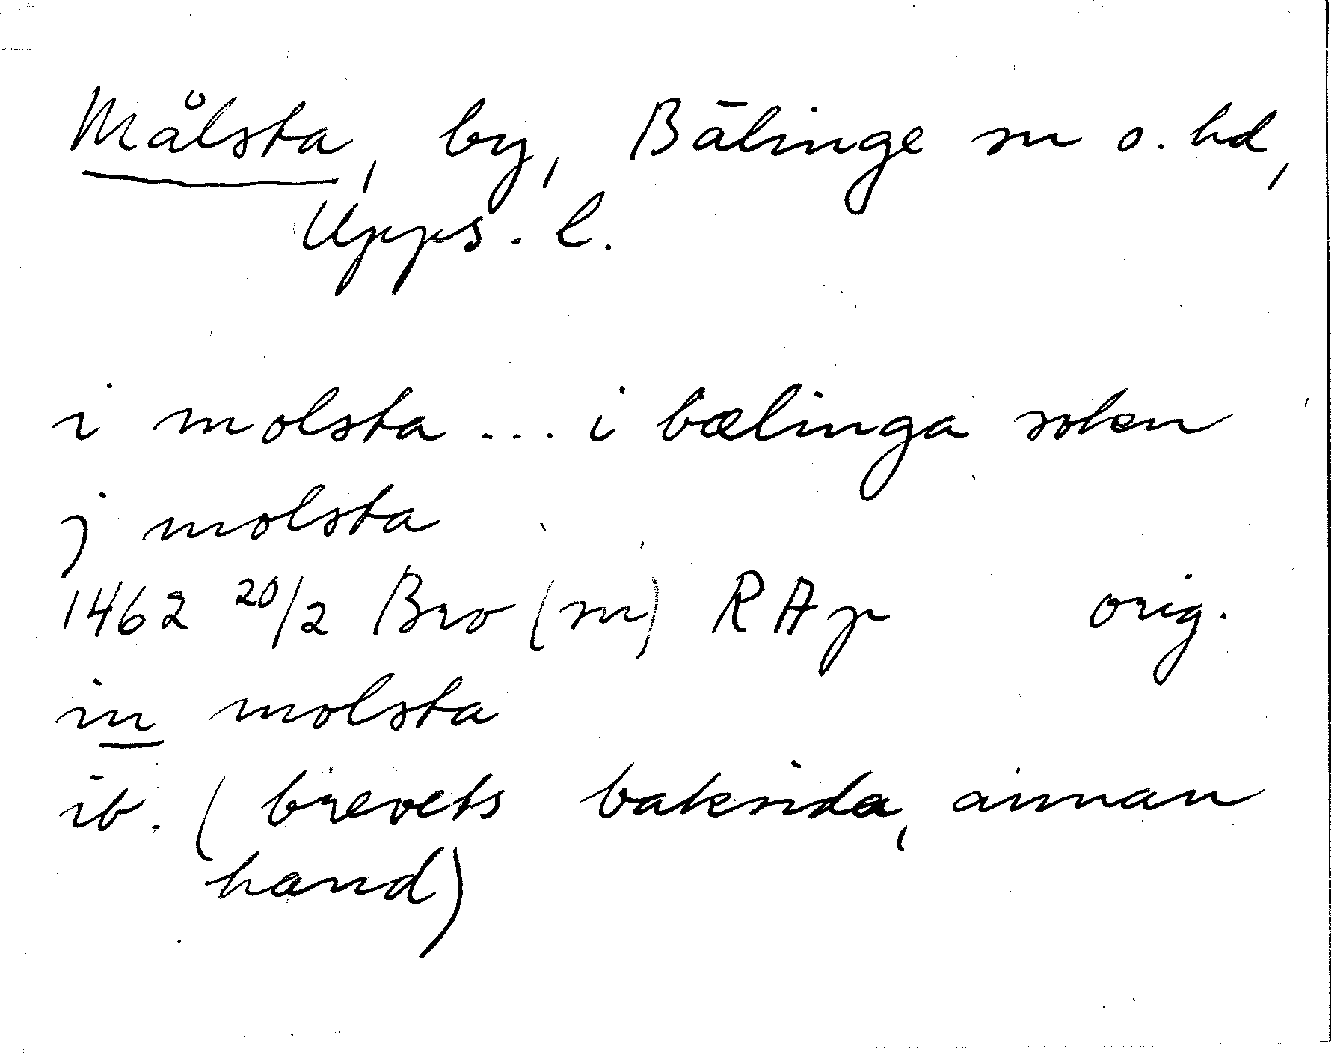 Målsta, by, Bälinge sn o. hd,
Upps. l.
i molsta ... i bælinga sokn
j molsta
1462 20/2 Bro (sn) RAp orig.
in molsta
ib. (brevets baksida, annan
hand)